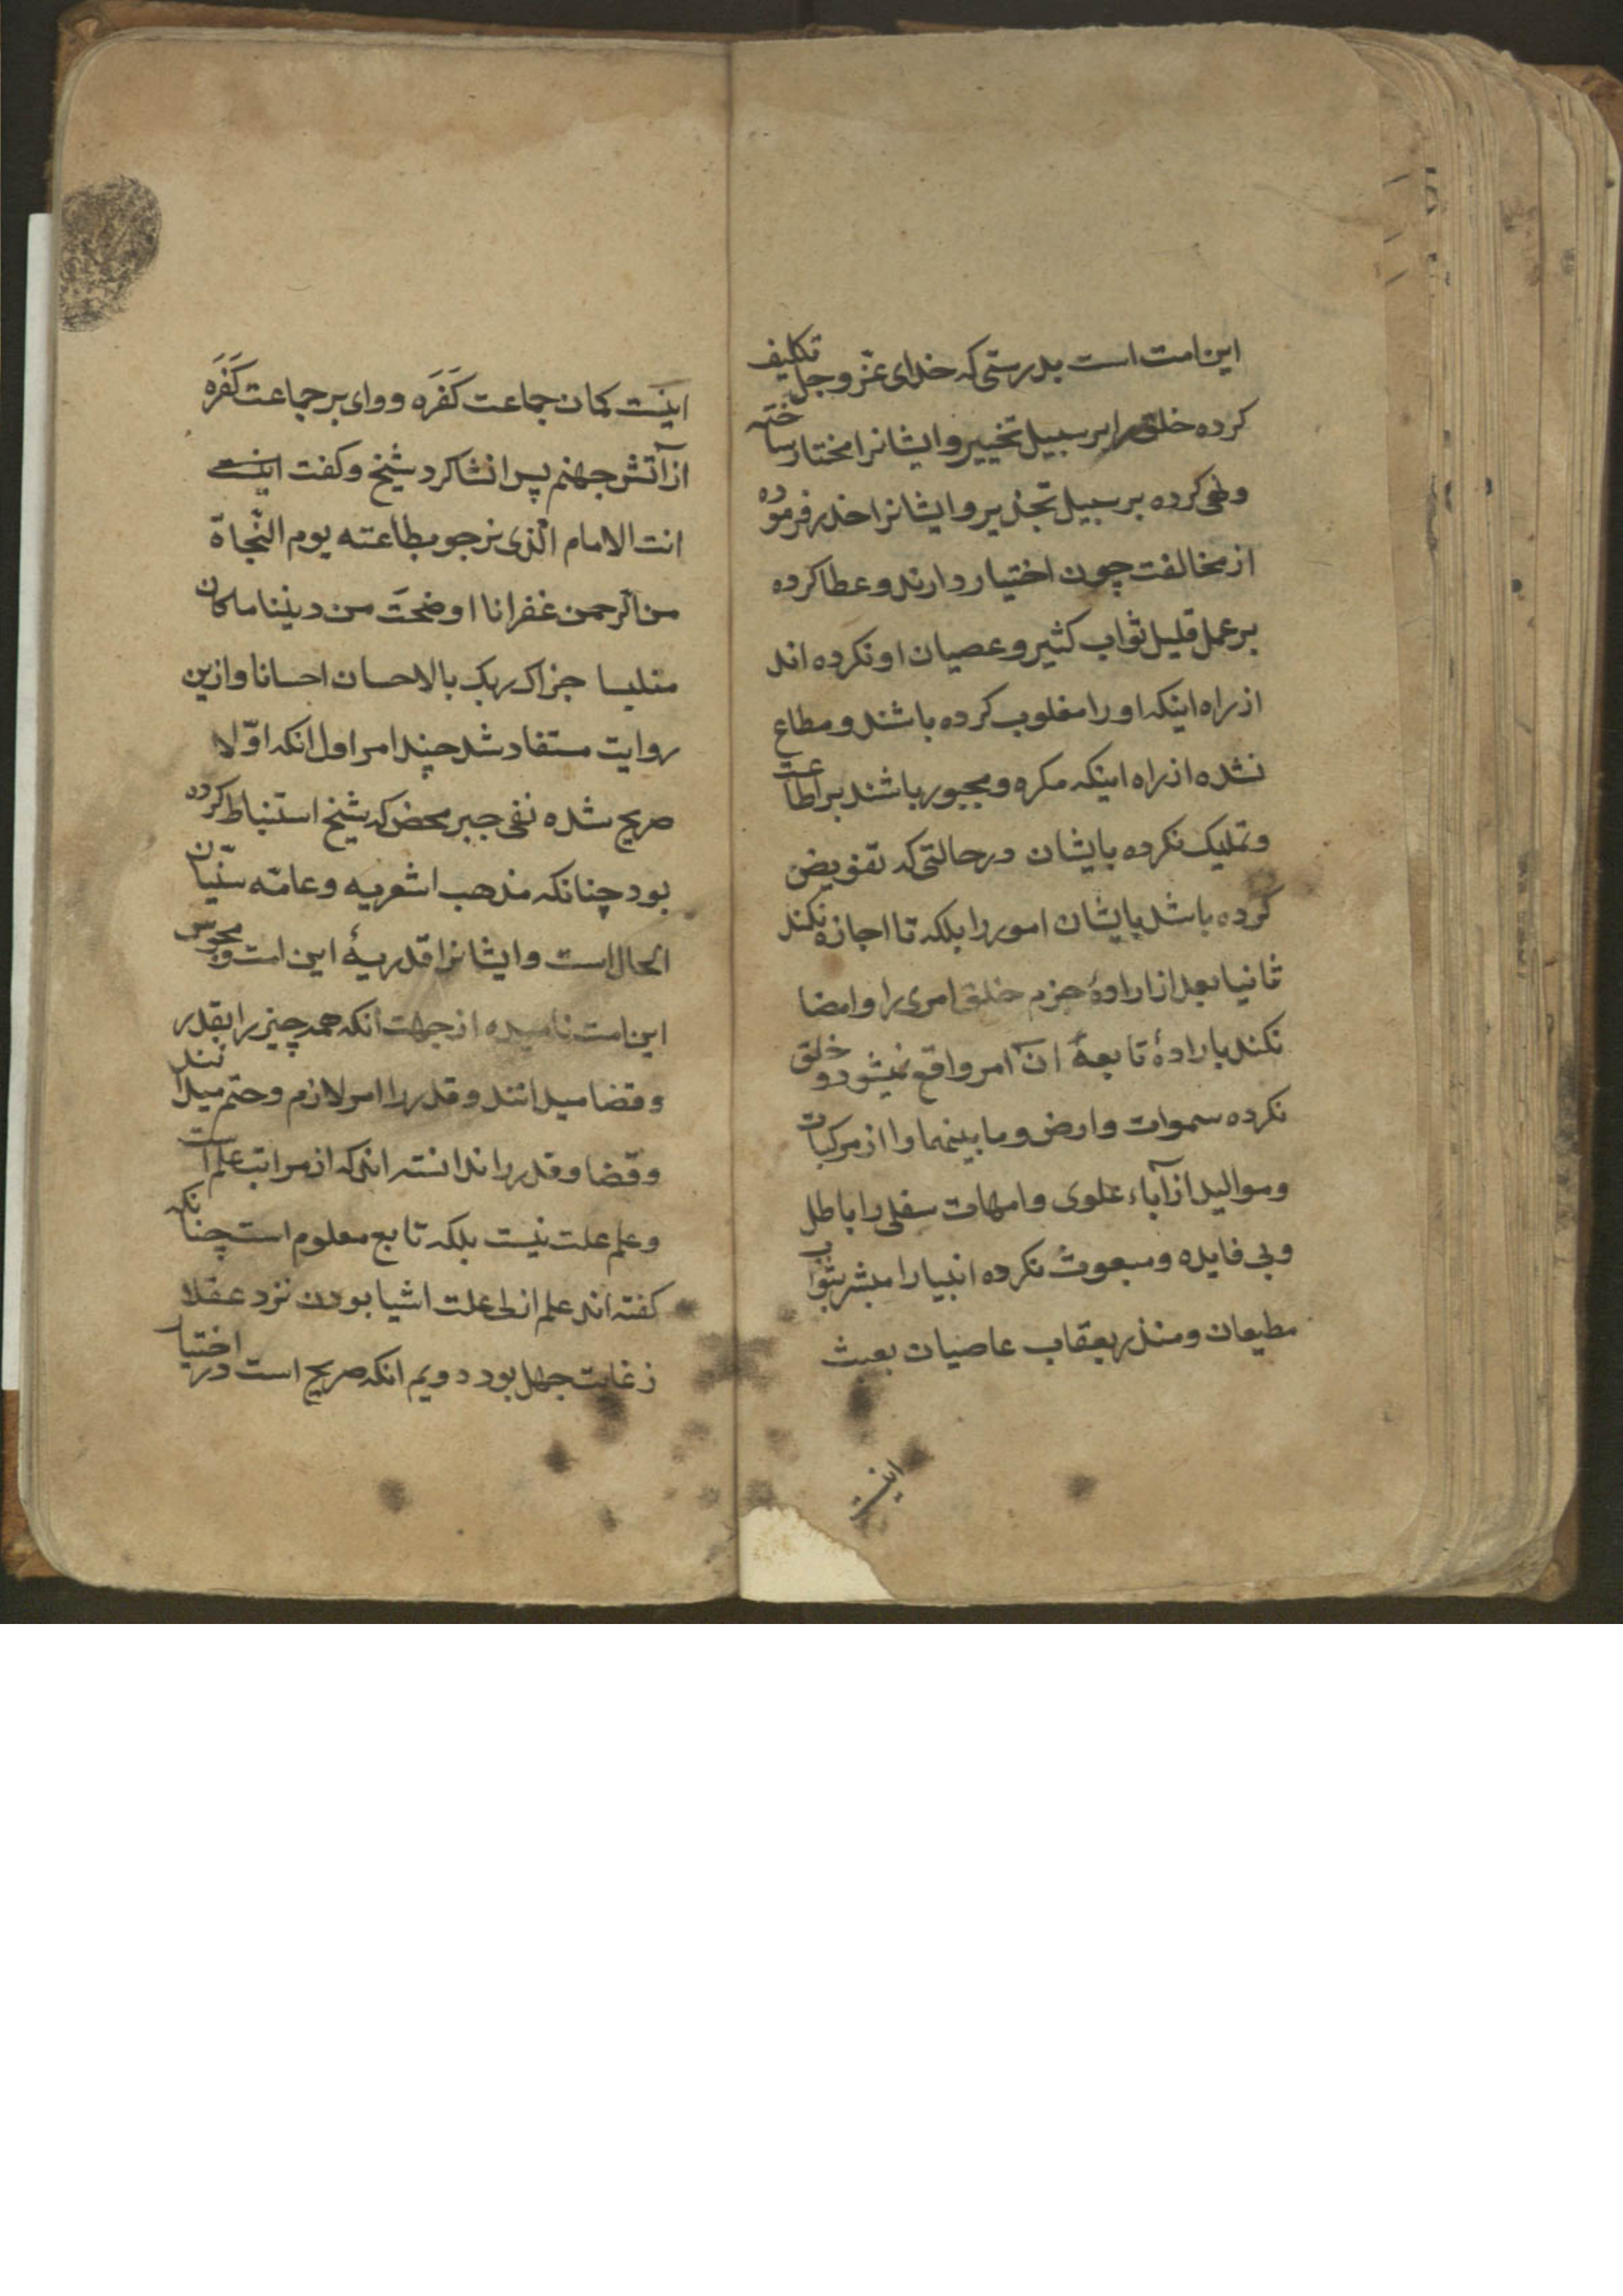 این امت است بدرستی که خدای عزّ وجل تکلیف
کرده خلق را بر سبیل تخییر و ایشانرا مختار ساخته
و نهی کرده بر سبیل تحذیر و ایشانرا حذر فرموده
از مخالفت چون اختیار دارند و عطا کرده
بر عمل قلیل ثواب کثیر و عصیان او نکرده اند
از راه اینکه او را مغلوب کرده باشند و مطاع
نشده از راه اینکه مکره و مجبور باشند بر اطاعت
و تملیک نکرده بایشان در حالتی که تفویض
کرده باشد بایشان امور را بلکه تا اجازه نکند
ثانیا بعد از ارادهٔ جزم خلق امری را و امضا
نکند بارادهٔ تابعهٔ آن امر واقع نمیشود و خلق
نکرده سموات وارض و ما بینهما را از مرکبات
و موالید از آباء علوی و امهات سفلی را باطل
و بی فایده و مبعوث نکرده انبیا را مبشر بثواب
مطیعان و منذر بعقاب عاصیان بعبث
اینست
اینست کمان جماعت کَفَرَه و وای بر جماعت کَفَرَه
از آتش جهنم پس انشا کرد شیخ و کفت ابیات
انت الامام الّذی نرجو بطاعته یوم النّجاة
من الرحمن غفرانا اوضحتَ من دیننا ماکان
ملتبسا جزاک ربک بالاحسان احسانا و ازین
روایت مستفاد شد چند امر اول انکه اوّلا
صریح شده نفی جبر محض که شیخ استنباط کرده
بود چنانکه مذهب اشعریه و عامّه سنّیان
الحال است و ایشانرا قدریهٔ این امت و مجوس
این امت نامیده از جهت انکه همه چیز را بقدر
و قضا میدانند و قدر را امر لازم و حتم میدانند
و قضا و قدر را ندانسته اند که از مراتب علم است
و علم علت نیست بلکه تابع معلوم است چنانکه
کفته اند علم ازلی علت اشیا بودن نزد عقلا
ز غایت جهل بود دویم انکه صریح است در اختیار